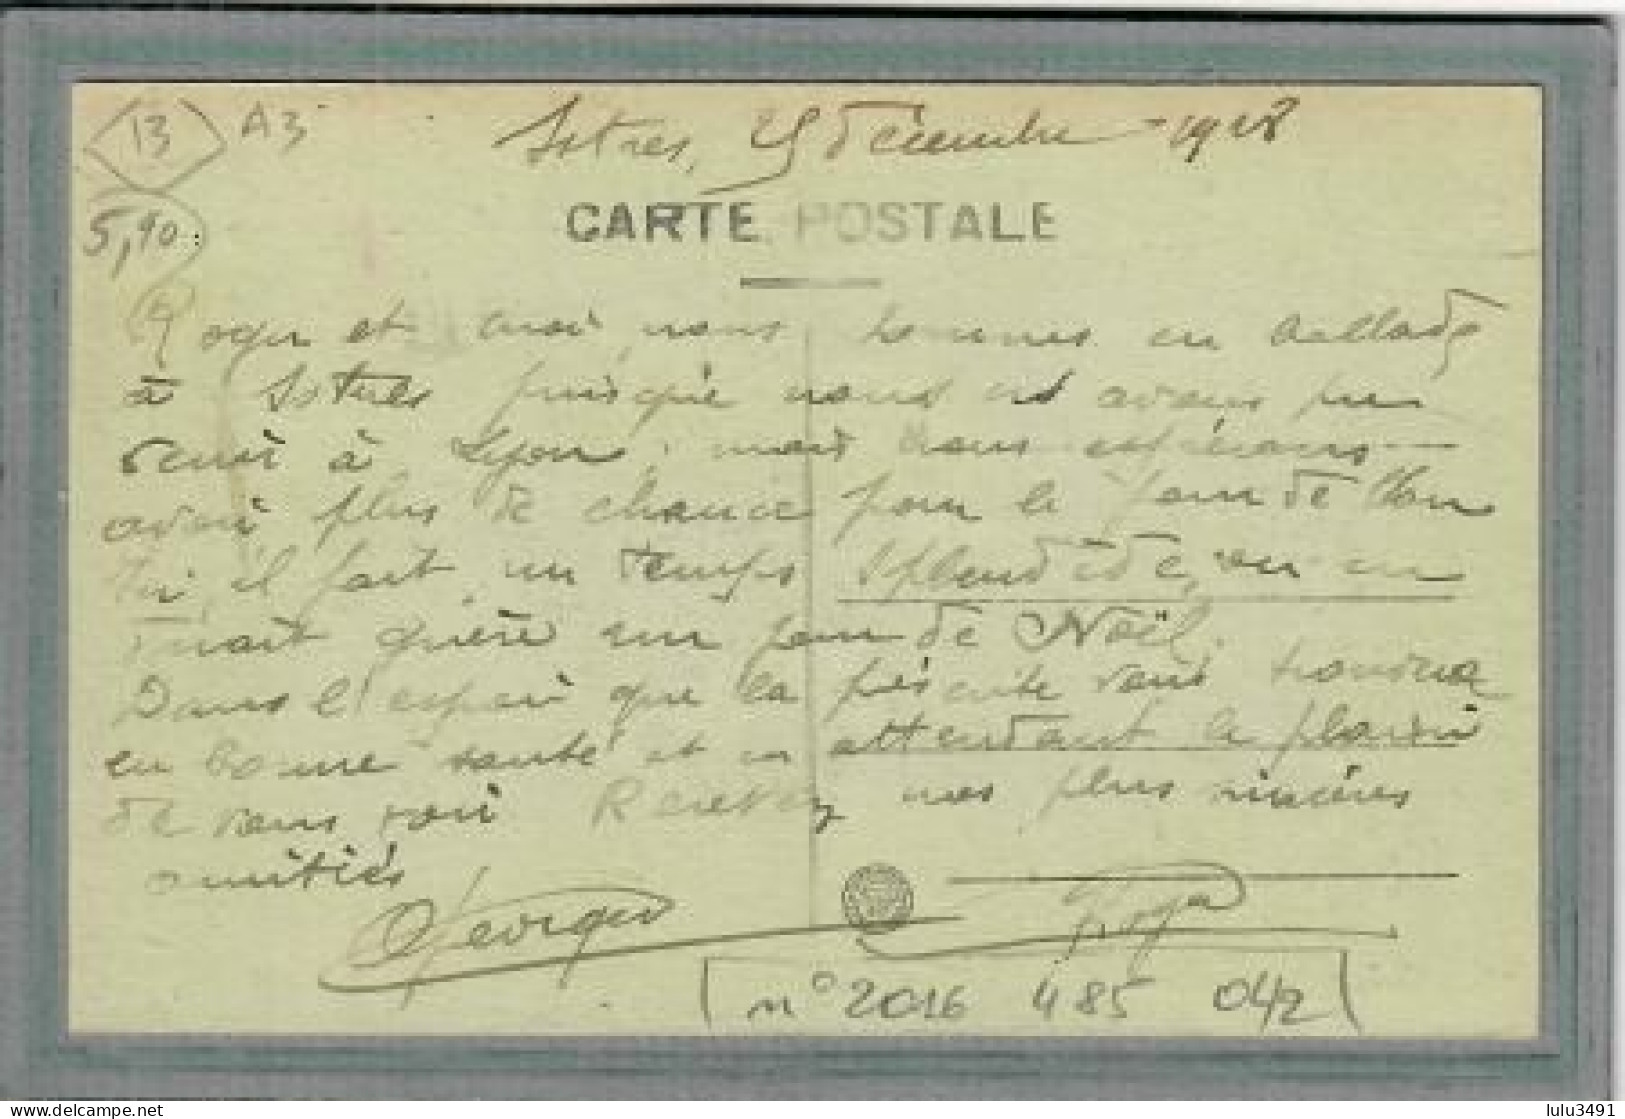 13 A3
Istres, 25 décembre 1928
5,90
CARTE POSTALE
Roger et moi nous sommes en ballade
à Istres puisque nous avons pu
venir à Lyon, mais nous espérons
avoir plus de chance pour le jour de l'an
ici, il fait un temps splendide, on ne
dirait guère un jour de Noël.
Dans l'espoir que la présente vous trouvera
en bonne santé et en attendant le plaisir
de vous voir Recevez nos plus sincères
amitiés
Georges Roger
n° 2016 485 042
www.delcampe.net lulu3491